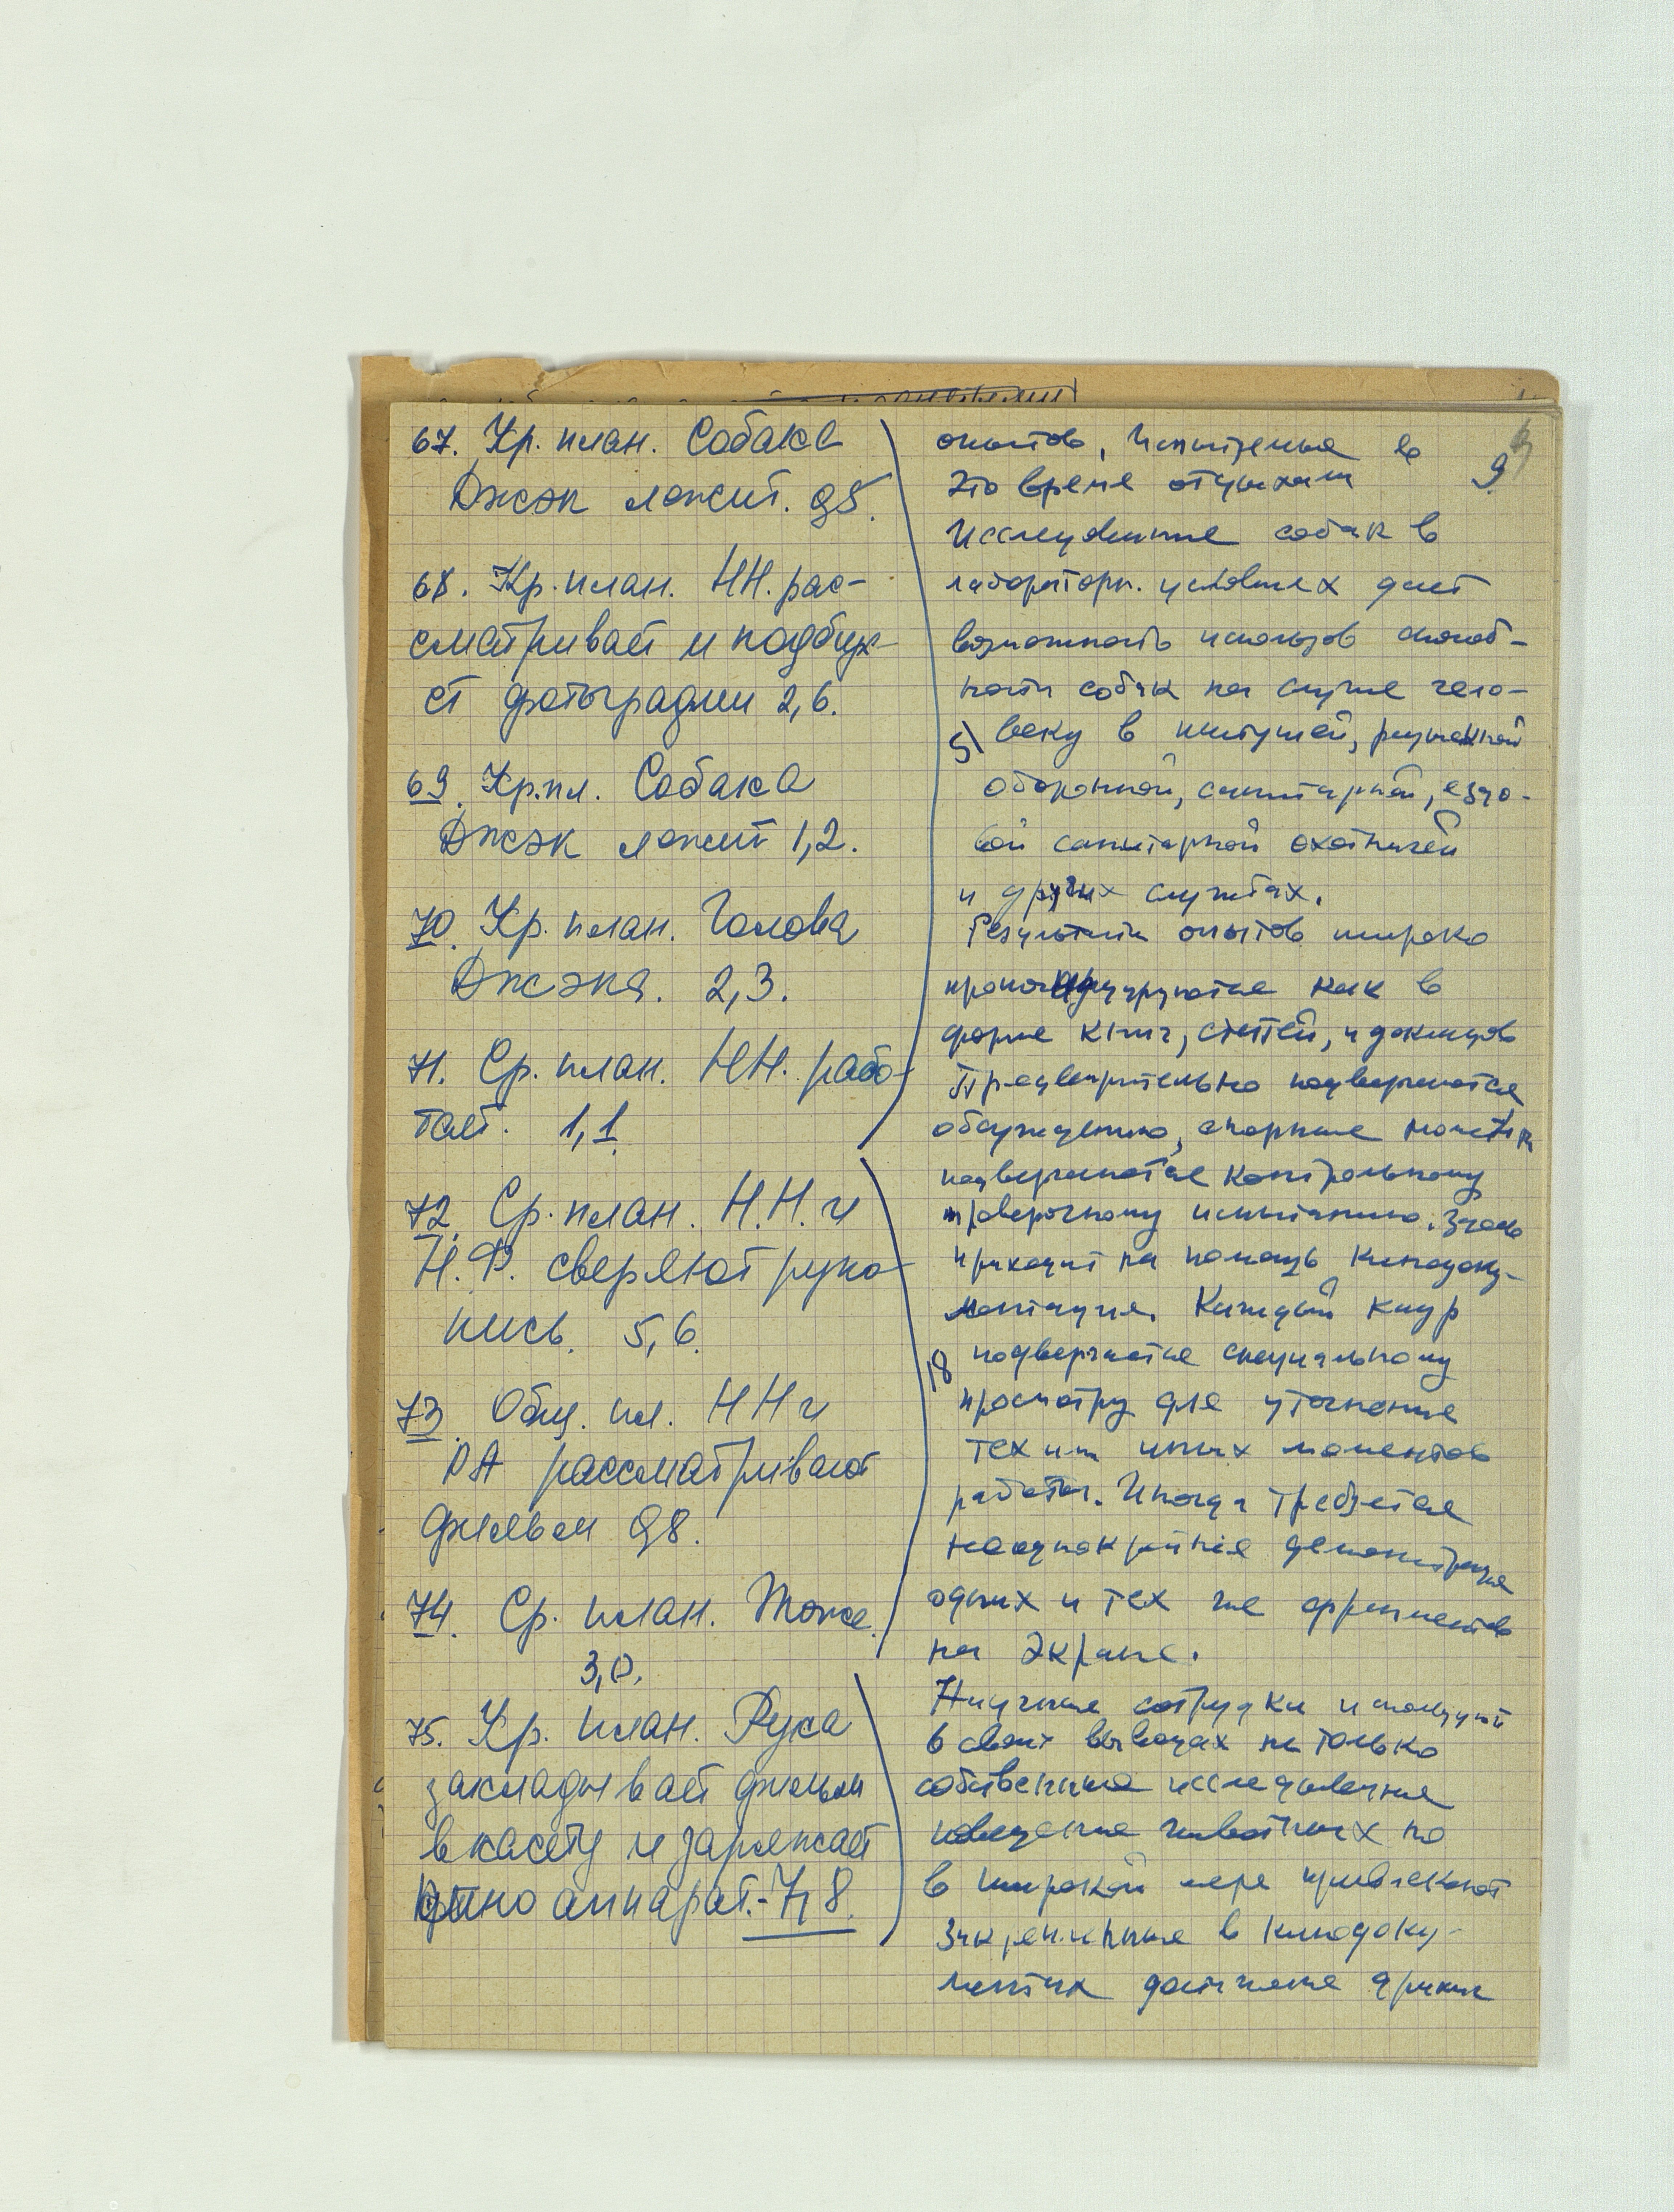 67. Кр. план. Собака
Джэк лежит. 0,5.
68. Кр. план. НН. рас-
сматривает и подбира-
ет фотографии 2,6.
69. Кр. пл. Собака
Джэк лежит 1,2.
70. Кр. план. Голова
Джэка. 2,3.
71. Ср. план. НН. рабо-
тает. 1,1.
72. Ср. план. Н.Н. и
Н.Ф. сверяют руко-
пись. 5,6.
73. Общ. пл. НН и
РА рассматривают
фильм 0,8.
74. Ср. план. Тоже.
3,0.
75. Кр. план. Рука
закладывает фильм
в касету и заряжает
кино аппарат. - 7,8.
9
опытов, в
это время отдыхает
Исследование собак в
лабораторн. условиях дает
возможность использов способ-
ности собак на службе чело-
5) веку в
оборонной, санитарной, ездо-
вой санитарной охотничей
и других службах.
Результаты опытов широко
как в
форме книг, статей, и докладов
Предварительно подвергаются
обсуждению, спорные моменты
подвергаются контрольному
проверочному испытанию. Здесь
приходит на помощь кинодоку-
ментация. Каждый кадр
18 подвергается специальному
просмотру для уточнения
тех или иных моментов
работы. Иногда требуется
неоднократная демонстрация
одних и тех же фрагментов
на экране.
Научные сотрудки используют
в своих выводах не только
собственные исследования
поведения животных но
в широкой мере привлекают
Закрепленные в кинодоку-
ментах достижения других